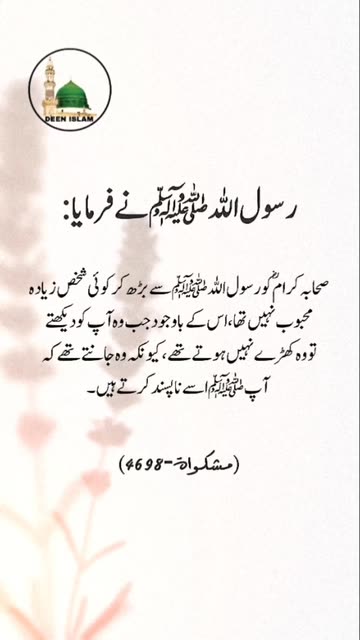 DEEN ISLAM
رسول اللہ ﷺ نے فرمایا:
صحابہ کرامؓ کو رسول اللہ ﷺ سے بڑھ کر کوئی شخص زیادہ
محبوب نہیں تھا، اس کے باوجود جب وہ آپ کو دیکھتے
تو وہ کھڑے نہیں ہوتے تھے، کیونکہ وہ جانتے تھے کہ
آپ ﷺ اسے ناپسند کرتے ہیں۔
(مشکواۃ-4698)